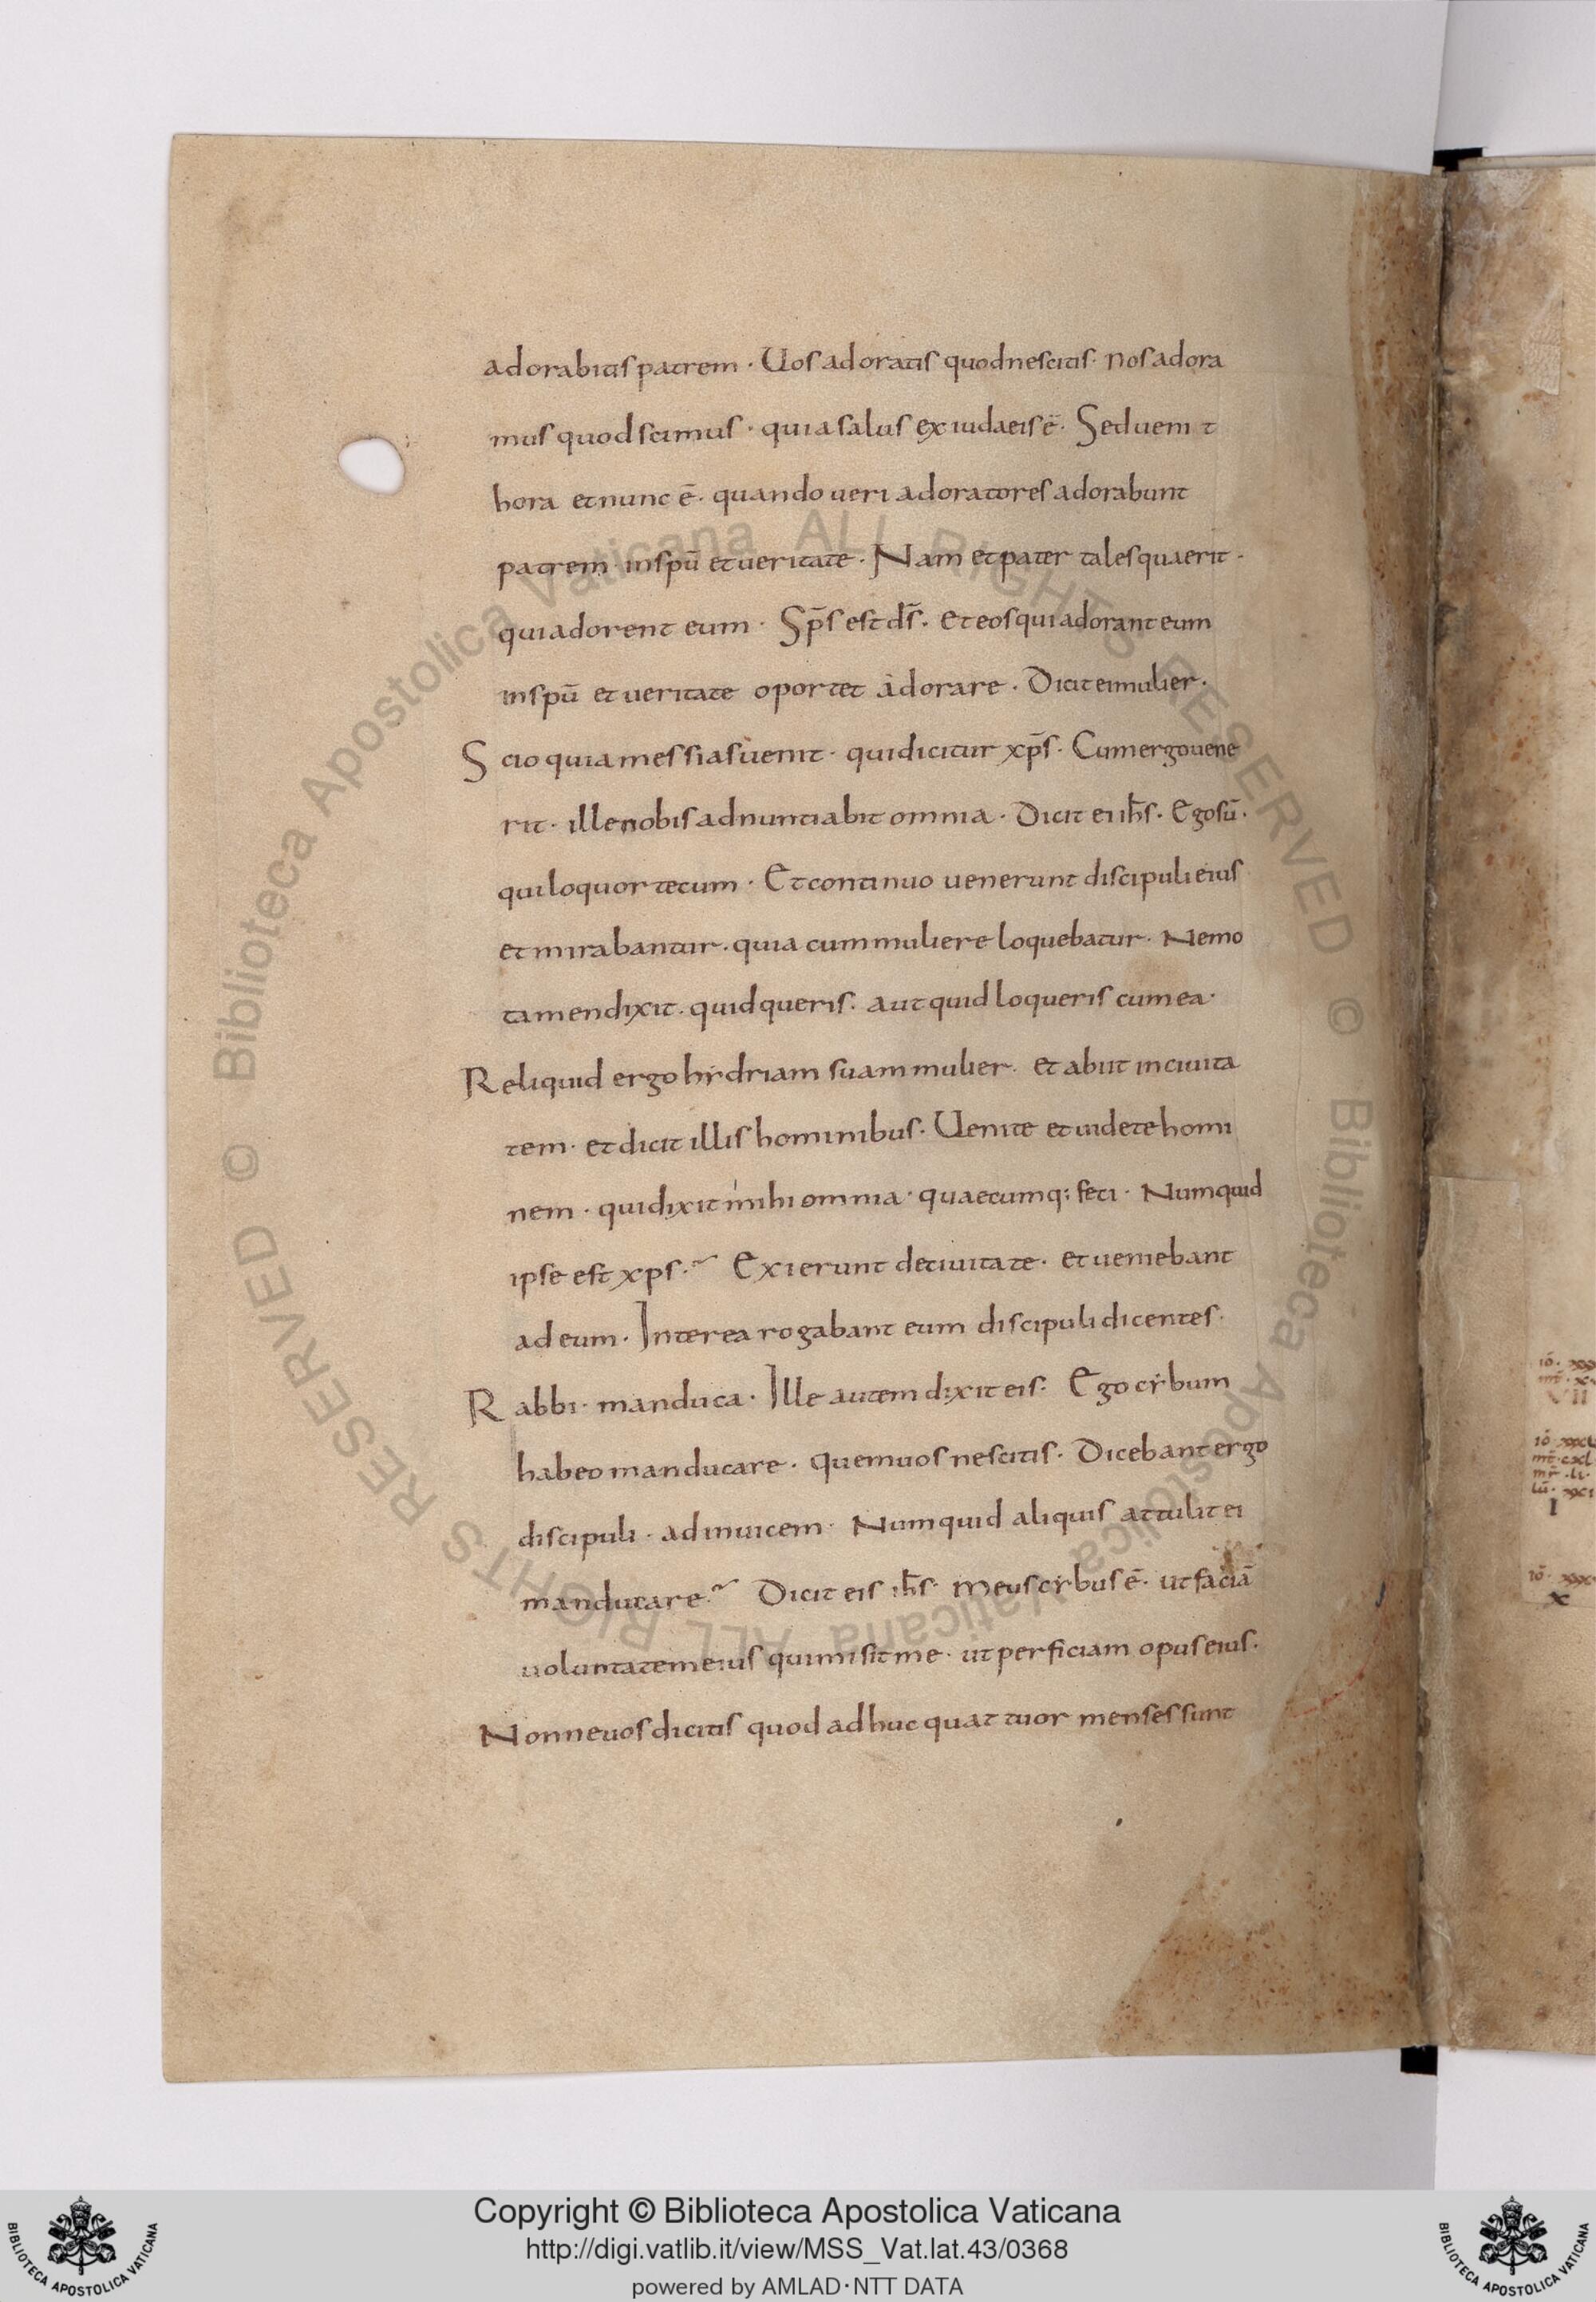 adorabitis patrem · Uos adoratis quod nescitis · nos adora
mus quod scimus · quia salus ex iudaeis ē · Sed uenit
hora et nunc ē · quando ueri adoratores adorabunt
patrem in spū et ueritate · Nam et pater tales quaerit ·
qui adorent eum · Sp̄s est d̄s · et eos qui adorant eum
in spū et ueritate oportet adorare · Dicit ei mulier ·
Scio quia messias uenit · qui dicitur xp̄s · Cum ergo uene
rit · ille nobis adnuntiabit omnia · Dicit ei ih̄s · Ego sū ·
qui loquor tecum · Et continuo uenerunt discipuli eius
et mirabantur · quia cum muliere loquebatur · Nemo
tamen dixit · quid queris · aut quid loqueris cum ea ·
Reliquid ergo hẏdriam suam mulier · et abiit in ciuita
tem · et dicit illis hominibus · Uenite et uidete homi
nem · qui dixit mihi omnia · quaecumq; feci · Numquid
ipse est xps ·~ Exierunt de ciuitate · et ueniebant
ad eum · Interea rogabant eum discipuli dicentes ·
Rabbi · manduca · Ille autem dixit eis · Ego cẏbum
habeo manducare · quem uos nescitis · Dicebant ergo
discipuli · ad inuicem · Numquid aliquis attulit ei
manducare ·~ Dicit eis ih̄s · meus cẏbus ē · ut faciā
uoluntatem eius qui misit me · ut perficiam opus eius ·
Nonne uos dicitis quod adhuc quattuor menses sunt
iō ·
VII
iō ·
mr̄ · li ·
I
iō ·
x
© Biblioteca Apostolica Vaticana ALL RIGHTS RESERVED © Biblioteca Apostolica Vaticana ALL RIGHTS RESERVED
Copyright © Biblioteca Apostolica Vaticana
http://digi.vatlib.it/view/MSS_Vat.lat.43/0368
powered by AMLAD·NTT DATA
BIBLIOTECA APOSTOLICA VATICANA
BIBLIOTECA APOSTOLICA VATICANA